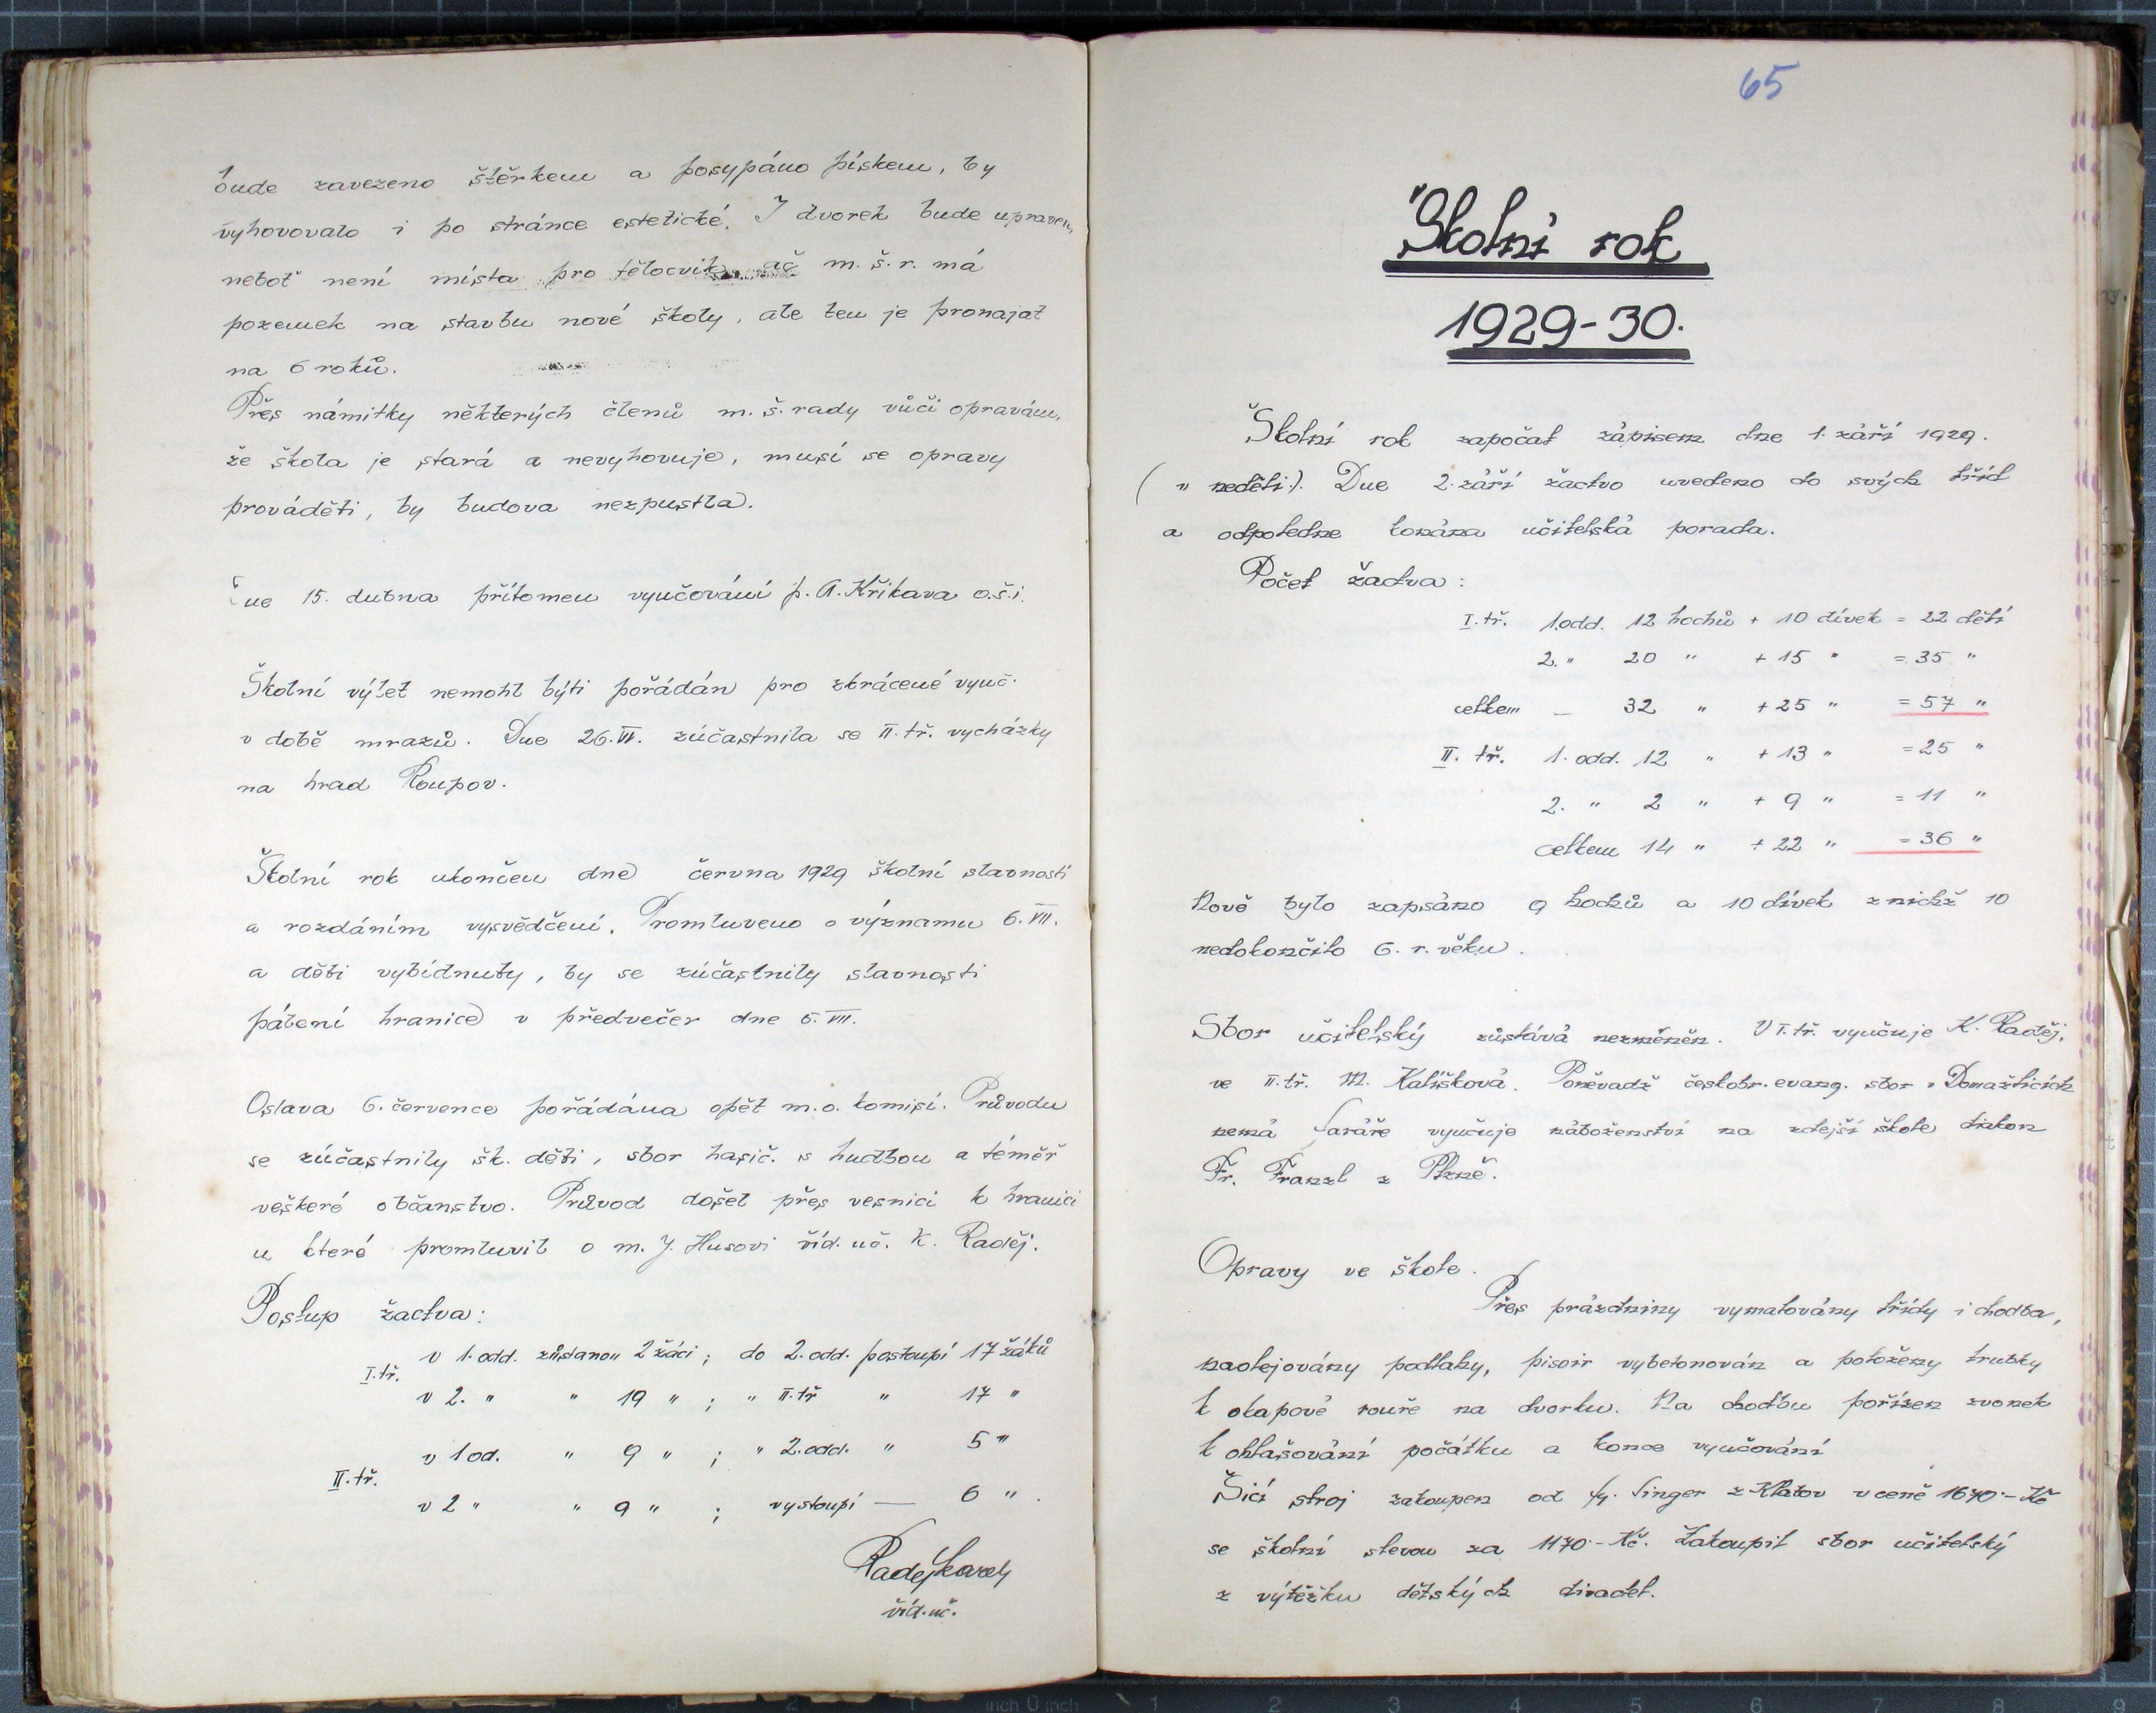 bude zavezeno štěrkem a posypáno pískem, by
vyhovovalo i po stránce estetické. I dvorek bude upraven,
neboť není místa pro tělocvik ač m. š. r. má
pozemek na stavbu nové školy, ale ten je pronajat
na 6 roků.
Přes námitky některých členů m. š. rady vůči opravám,
že škola je stará a nevyhovuje, musí se opravy
prováděti, by budova nezpustla.
Dne 15. dubna přítomen vyučování p. A. Křikava o.š.i.
Školní výlet nemohl býti pořádán pro zkrácené vyuč.
v době mrazů. Dne 26.VI. zúčastnila se II. tř. vycházky
na hrad Roupov.
Školní rok ukončen dne června 1929 školní slavností
a rozdáním vysvědčení. Promluveno o významu 6. VII.
a děti vybídnuty, by se zúčastnily slavnosti
pálení hranice v předvečer dne 5. VII.
Oslava 6. července pořádána opět m. o. komisí. Průvodu
se zúčastnily šk. děti, sbor hasič. s hudbou a téměř
veškeré občanstvo. Průvod došel přes vesnici k hranici
u které promluvil o m. J. Husovi říd. uč. K. Raděj.
Postup žactva:
I. tř. v 1. odd. zůstanou 2 žáci ; do 2. odd. postoupí 17 žáků
v 2. " " 19 " ; " II. tř " 17 "
II. tř. v 1 od. " 9 " ; " 2. odd. " 5 "
v 2 " " 9 " ; vystoupí — 6 " .
Raděj Karel
říd. uč.
65
Školní rok
1929-30.
Školní rok započat zápisem dne 1. září 1929.
( v neděli ). Dne 2. září žactvo uvedeno do svých tříd
a odpoledne konána učitelská porada.
Počet žactva :
I. tř. 1. odd. 12 hochů + 10 dívek = 22 dětí
2. " 20 " + 15 " = 35 "
celkem — 32 " + 25 " = 57 "
II. tř. 1. odd. 12 " + 13 " = 25 "
2. " 2 " + 9 " = 11 "
celkem 14 " + 22 " = 36 "
Nově bylo zapsáno 9 hochů a 10 dívek z nichž 10
nedokončilo 6. r. věku .
Sbor učitelský zůstává nezměněn. V I. tř. vyučuje K. Raděj,
ve II. tř. M. Kalíšková. Poněvadž českobr. evang. sbor v Domažlicích
nemá faráře vyučuje náboženství na zdejší škole diakon
Fr. Franzl z Plzně.
Opravy ve škole .
Přes prázdniny vymalovány třídy i chodba,
naolejovány podlahy, pisoir vybetonován a položeny trubky
k okapové rouře na dvorku. Na chodbu pořízen zvonek
k ohlašování počátku a konce vyučování
Šicí stroj zakoupen od fy. Singer z Klatov v ceně 1670.- Kč
se školní slevou za 1170.- Kč. Zakoupil sbor učitelský
z výtěžku dětských divadel.